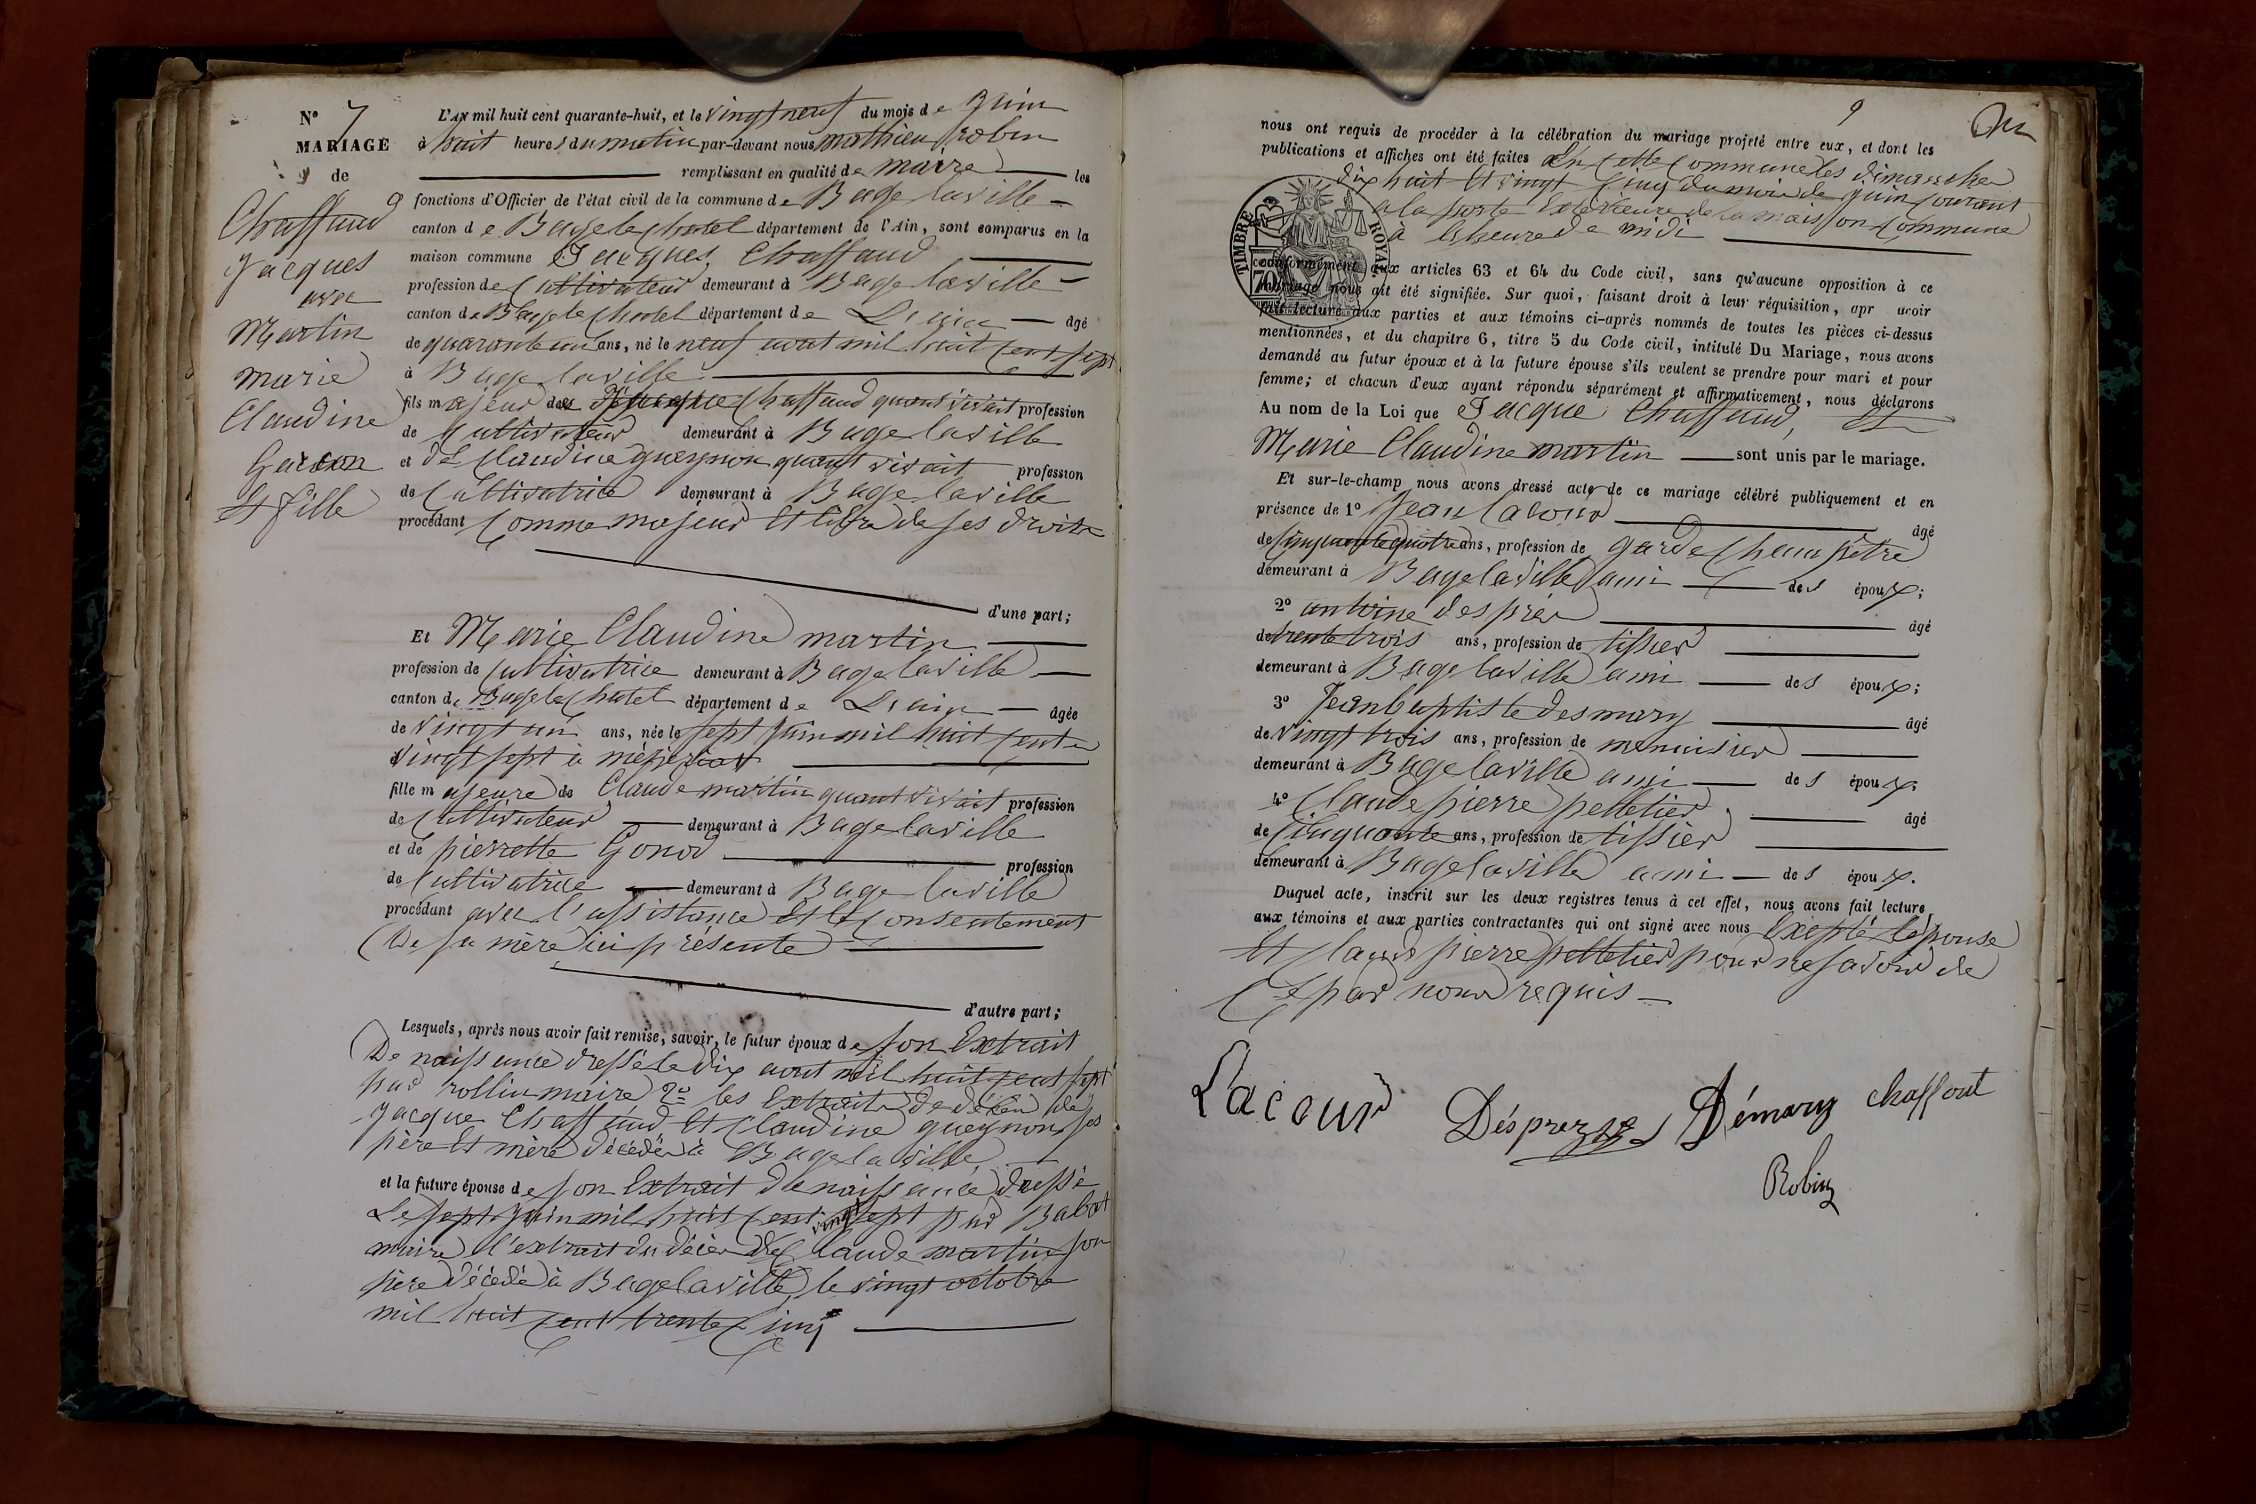 N° 7
MARIAGE
de
Chaffaud
Jacques
avec
Martin
marie
Claudine
Garcon
et fille
L'AN mil huit cent quarante-huit, et le vingt neuf du mois de Juin
à huit heures du matin par-devant nous mathieu robin
remplissant en qualité de maire les
fonctions d'Officier de l'état civil de la commune de Bage laville
canton de Bage le Chatel département de l'Ain, sont comparus en la
maison commune Jacques Chaffaud
profession de Cultivateur demeurant à Bage laville
canton de Bage le Chatel département de L'ain âgé
de quarante un ans, né le neuf aout mil huit cent sept
à Bage laville
fils majeur de Jacque Chaffaud quant vivait profession
de Cultivateur demeurant à Bage laville
et de Claudine gueynon quant vivait profession
de Cultivatrice demeurant à Bage laville
procédant Comme majeur et libre de ses droits
d'une part;
Et Marie Claudine martin
profession de Cultivatrice demeurant à Bage laville
canton de Bage le Chatel département de L'ain âgée
de vingt un ans, née le sept juin mil huit cent
vingt sept à mézériat
fille majeure de Claude martin quant vivait profession
de Cultivateur demeurant à Bage laville
et de pierrette Gonod profession
de Cultivatrice demeurant à Bage laville
procédant avec l'assistance et le Consentement
De sa mère ici présente
d'autre part;
Lesquels, après nous avoir fait remise, savoir, le futur époux de son Extrait
De naissance dressé le dix aout mil huit cent sept
par rollin maire 2° les Extraits de décès de
jacque Chaffaud et Claudine gueynon ses
père et mère décédés à Bage laville
et la future épouse de son Extrait de naissance dressé
Le sept juin mil huit cent vingt sept par Babat
maire l'extrait du décès de Claude martin son
père décédé à Bage laville le vingt octobre
mil huit cent trente cinq
9
nous ont requis de procéder à la célébration du mariage projeté entre eux, et dont les
publications et affiches ont été faites en cette Commune les dimanches
dix huit et vingt cinq du mois de juin courant
a la porte Extérieure de la maison Commune
à l'heure de midi
TIMBRE ROYAL
70
conformément aux articles 63 et 64 du Code civil, sans qu'aucune opposition à ce
mariage nous ait été signifiée. Sur quoi, faisant droit à leur réquisition, apr avoir
fait lecture aux parties et aux témoins ci-après nommés de toutes les pièces ci-dessus
mentionnées, et du chapitre 6, titre 5 du Code civil, intitulé Du Mariage, nous avons
demandé au futur époux et à la future épouse s'ils veulent se prendre pour mari et pour
femme; et chacun d'eux ayant répondu séparément et affirmativement, nous déclarons
Au nom de la Loi que Jacque Chaffaud, et
Marie Claudine martin sont unis par le mariage.
Et sur-le-champ nous avons dressé acte de ce mariage célébré publiquement et en
présence de 1° Jean Lacour âgé
de Cinquante quatre ans, profession de garde Champêtre
demeurant à Bage laville ami des époux;
2° antoine després âgé
de trente trois ans, profession de tissier
demeurant à Bage laville ami des époux;
3° Jean baptiste desmary âgé
de vingt trois ans, profession de menuisier
demeurant à Bage laville ami des époux;
4° Claude pierre pelletier âgé
de Cinquante ans, profession de tissier
demeurant à Bage laville ami des époux.
Duquel acte, inscrit sur les deux registres tenus à cet effet, nous avons fait lecture
aux témoins et aux parties contractantes qui ont signé avec nous Excepté l'épouse
Et Claude pierre pelletier pour ne savoir de
Ce par nous requis
Lacour
Désprez
Démary
chaffout
Robin